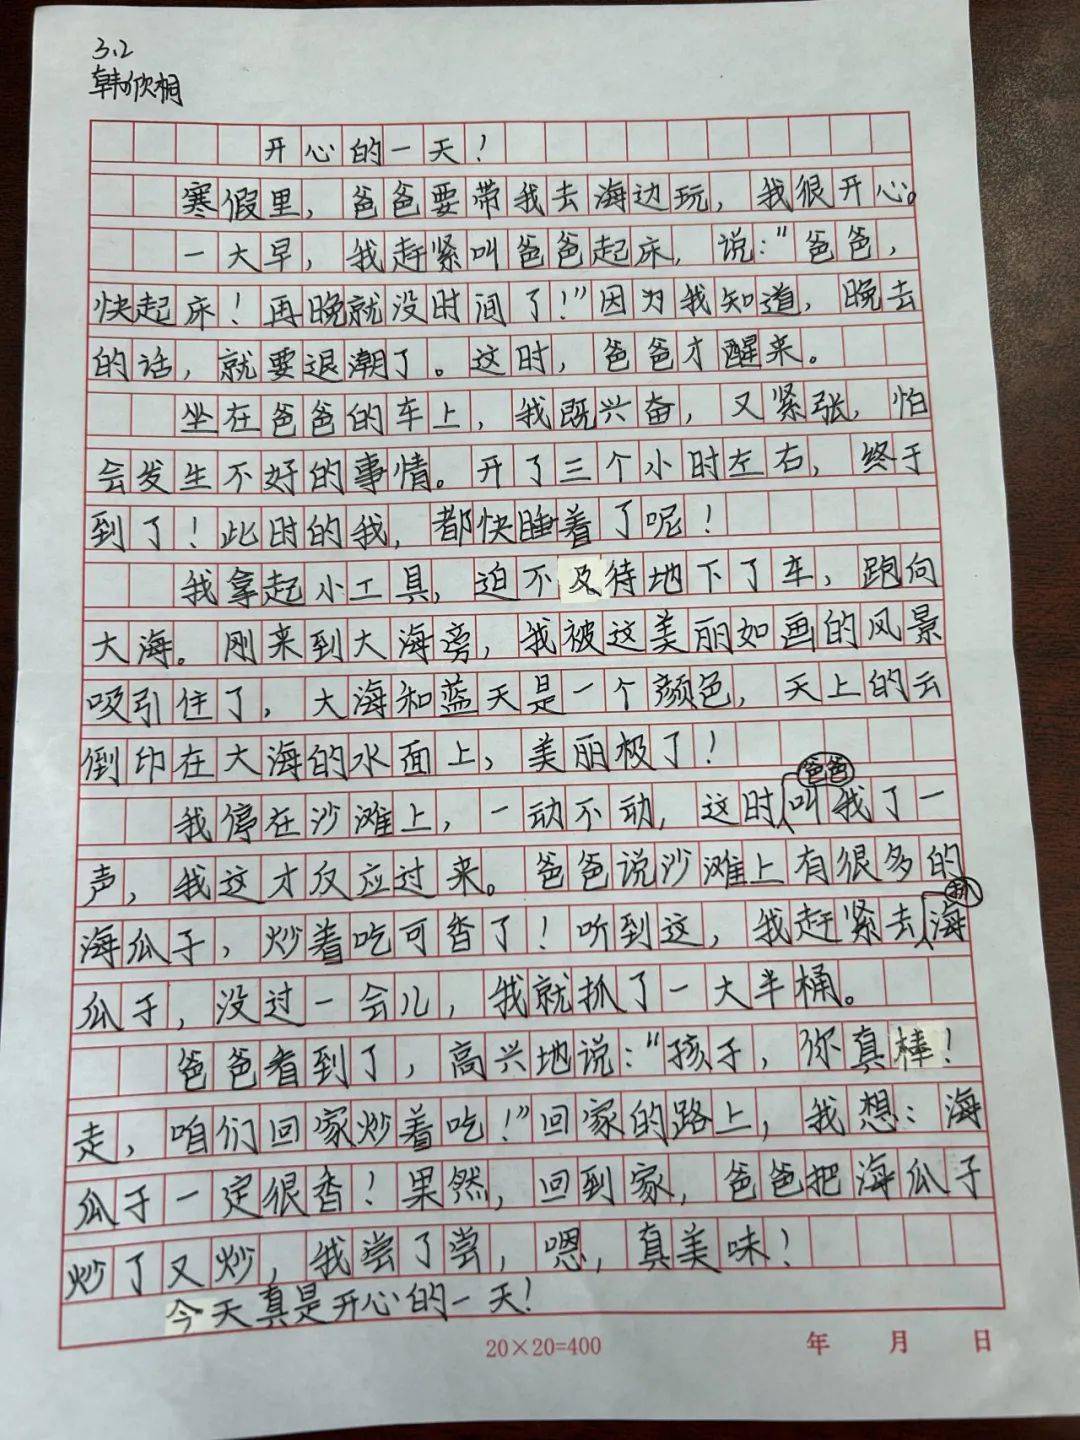 3.2
韩欣桐
开心的一天！
寒假里，爸爸要带我去海边玩，我很开心。
一大早，我赶紧叫爸爸起床，说：“爸爸，
快起床！再晚就没时间了！”因为我知道，晚去
的话，就要退潮了。这时，爸爸才醒来。
坐在爸爸的车上，我既兴奋，又紧张，怕
会发生不好的事情。开了三个小时左右，终于
到了！此时的我，都快睡着了呢！
我拿起小工具，迫不及待地下了车，跑向
大海。刚来到大海旁，我被这美丽如画的风景
吸引住了，大海和蓝天是一个颜色，天上的云
倒印在大海的水面上，美丽极了！
我停在沙滩上，一动不动，这时爸爸叫我了一
声，我这才反应过来。爸爸说沙滩上有很多的
海瓜子，炒着吃可香了！听到这，我赶紧去抓海
瓜子，没过一会儿，我就抓了一大半桶。
爸爸看到了，高兴地说：“孩子，你真棒！
走，咱们回家炒着吃！”回家的路上，我想：海
瓜子一定很香！果然，回到家，爸爸把海瓜子
炒了又炒，我尝了尝，嗯，真美味！
今天真是开心的一天！
20×20=400 年 月 日